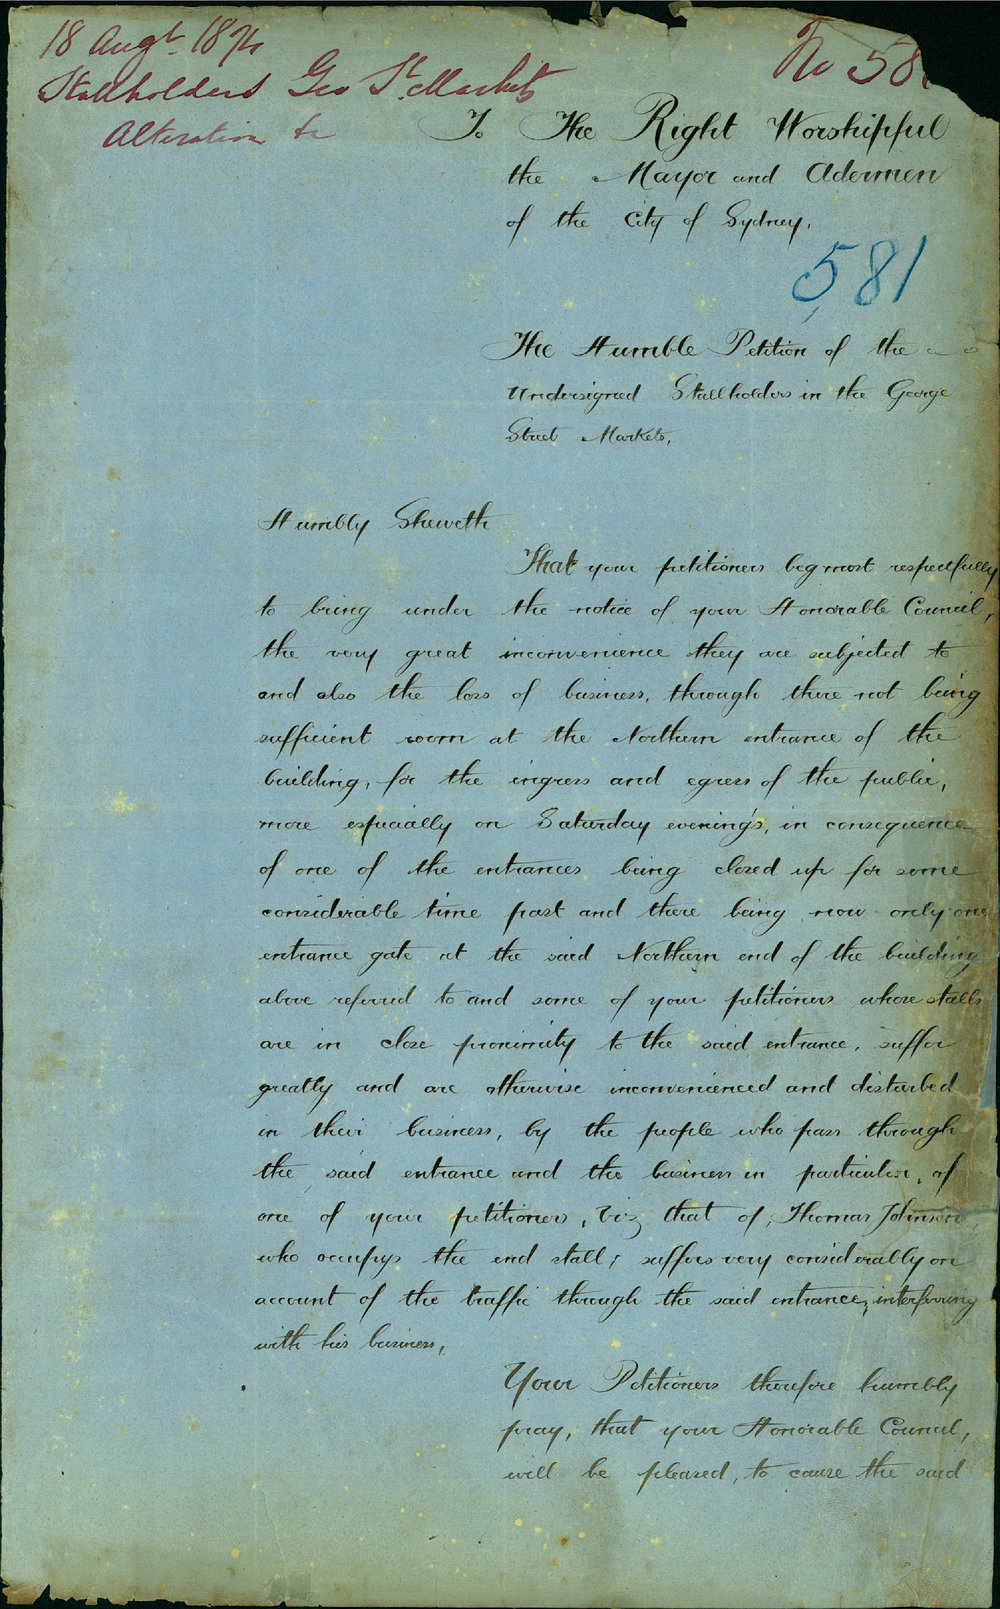 18 Augt 1874
No 58
Stallholders Geo St. Markets
Alteration &c
To The Right Worshipful
the Mayor and Adermen
of the City of Sydney,
581
The Humble Petition of the
Undersigned Stallholders in the George
Street Markets,
Humbly Sheweth
That your petitioners beg most respectfully
to bring under the notice of your Honorable Council,
the very great inconvenience they are subjected to
and also the loss of business, through there not being
sufficient room at the Northern entrance of the
building, for the ingress and egress of the public,
more especially on Saturday evening's, in consequence
of one of the entrances being closed up for some
considerable time past and there being now only one
entrance gate at the said Northern end of the building
above referred to and some of your petitioners whose stalls
are in close proximity to the said entrance, suffer
greatly and are otherwise inconvenienced and disturbed
in their business, by the people who pass through
the said entrance and the business in particular, of
one of your petitioners, viz that of, Thomas Johnson,
who occupys the end stall; suffers very considerably on
account of the traffic through the said entrance, interferring
with his business,
Your Petitioners therefore humbly
pray, that your Honorable Council,
will be pleased, to cause the said